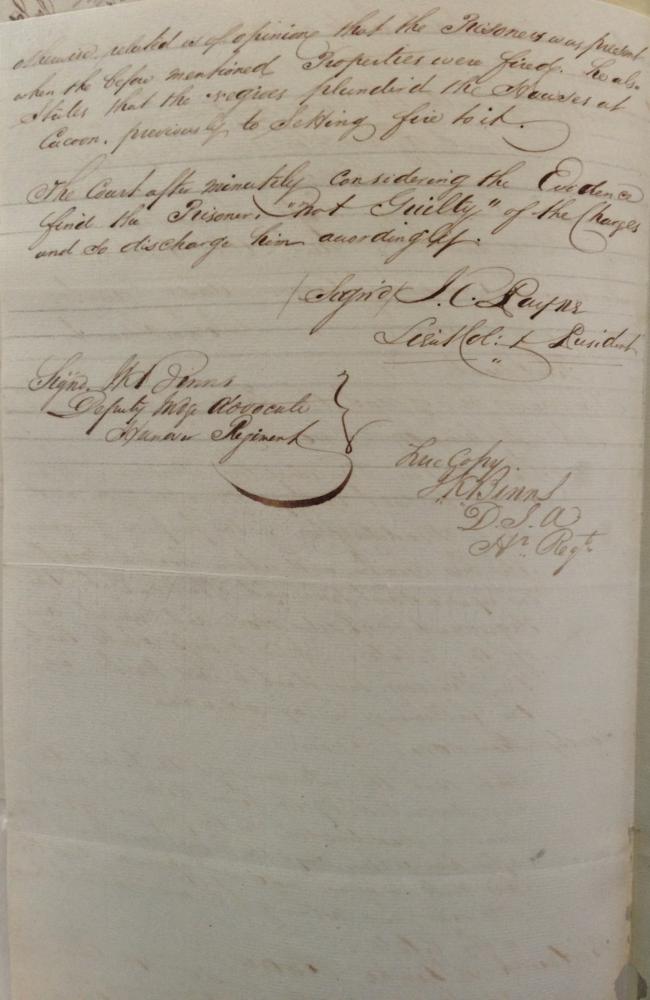 otherwise related is of opinion that the Prisoner was present
when the before mentioned Properties were fired. he also
States that the negroes plunder'd the Houses at
Cacoon, previously to Setting fire to it.
The Court after minutely considering the Evidence
find the Prisoner, "not Guilty" of the Charges
and do discharge him acordingly.
(Signd) J. C. Payne
Lieut Col: & President
Signd. J K Binns
Deputy Judge Advocate
Hanover Regiment
True Copy.
J K Binns
D. J. A
Hr. Regt.